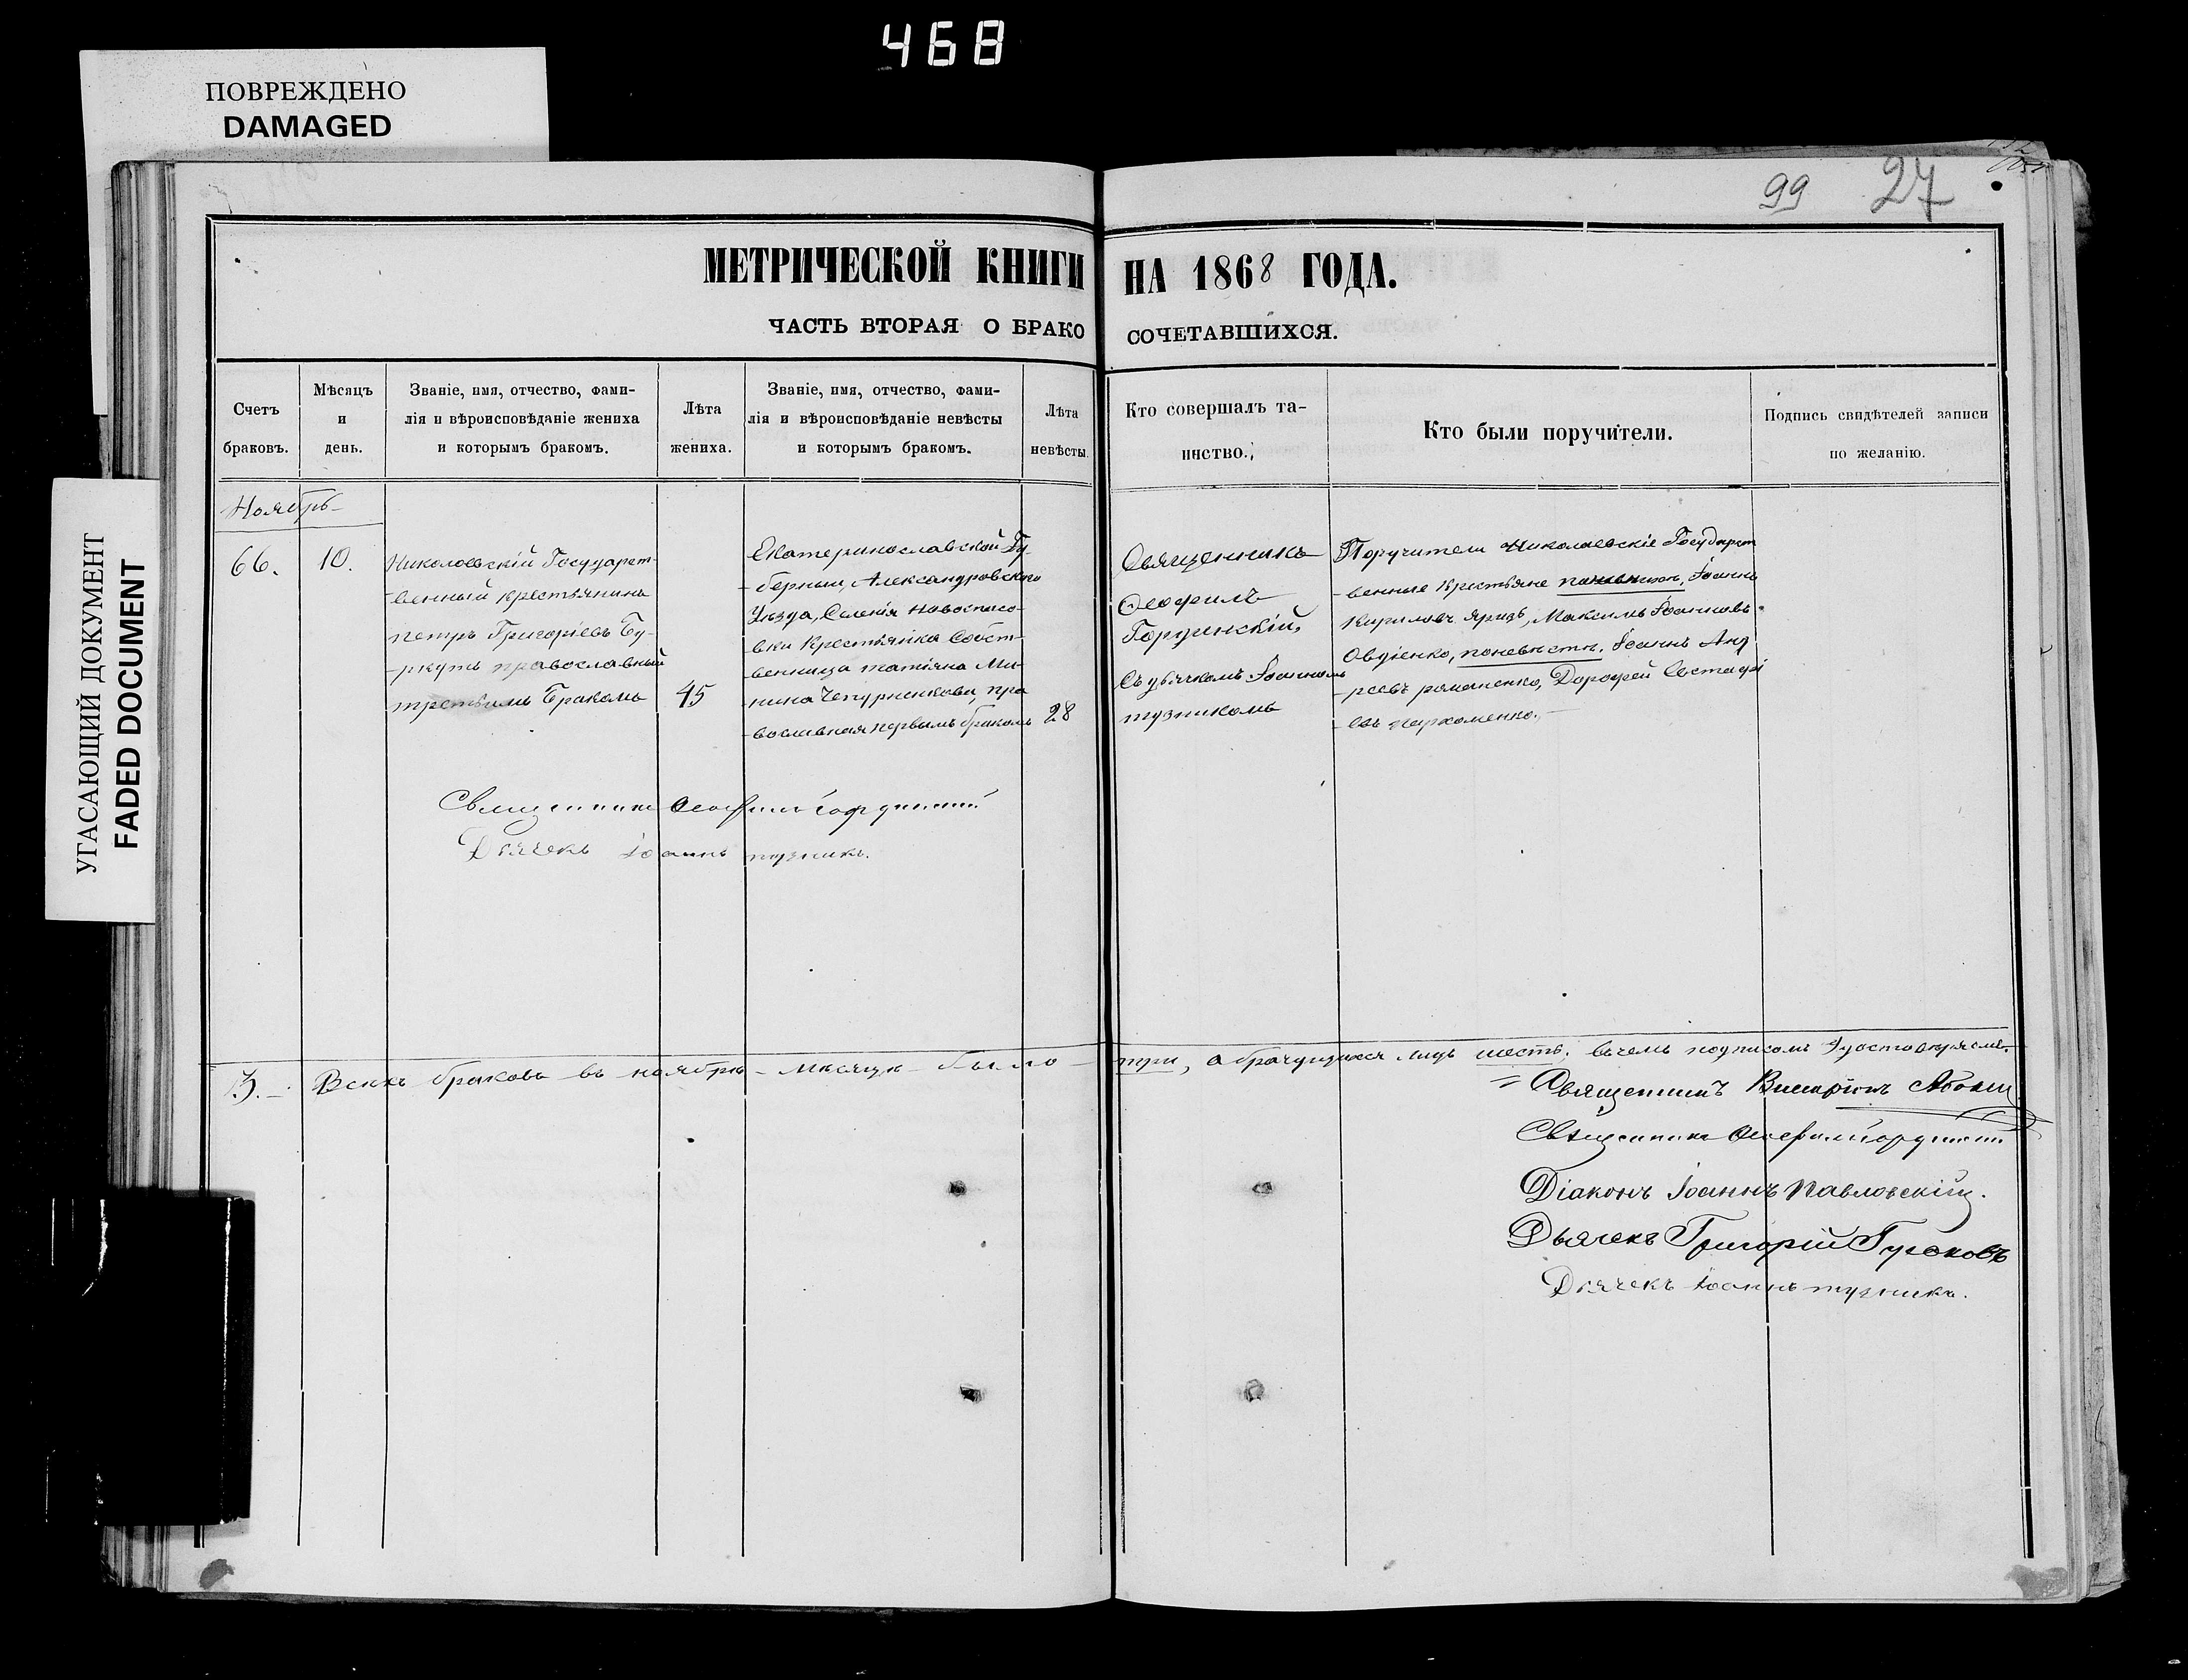 468
ПОВРЕЖДЕНО
DAMAGED
УГАСАЮЩИЙ ДОКУМЕНТ
FADED DOCUMENT
99 27
МЕТРИЧЕСКОЙ КНИГИ НА 1868 ГОДА.
ЧАСТЬ ВТОРАЯ О БРАКОСОЧЕТАВШИХСЯ.
Счетъ
браковъ.
Мѣсяцъ
и
день.
Званіе, имя, отчество, фами-
лія и вѣроисповѣданіе жениха
и которымъ бракомъ.
Лѣта
жениха.
Званіе, имя, отчество, фами-
лія и вѣроисповѣданіе невѣсты
и которымъ бракомъ.
Лѣта
невѣсты.
Кто совершалъ та-
инство.
Кто были поручители.
Подпись свидѣтелей записи
по желанію.
Ноябрь
66.
10.
Николаевскій Государст-
-венный крестьянинъ
петръ Григоріевъ Бу-
-ркутъ православный
третьимъ Бракомъ
45
Екатеринославской Гу
-берніи, Александровскаго
Уѣзда, Селенія Новоспасо-
-вки Крестьянка Собст-
-венница татіана Ми-
-нина Чепурненкова, пра
-вославная первымъ бракомъ
28
Священникъ
Ѳеофилъ
Гординскій,
Съ дьячкомъ Іоанномъ
тузникомъ
Поручители Николаевскіе Государст
-венные Крестьяне по женихѣ, Іоаннъ
Кириловъ Яридъ, Максимъ Іоанновъ
Овдіенко, по невѣстѣ. Іоаннъ Анд
-реевъ романенко, Дорофей Евстафі
-евъ пархоменко.
Священникъ Ѳеофилъ Гординскій
Дьячекъ Іоаннъ тузникъ.
3. Всѣхъ браковъ въ ноябрѣ мѣсяцѣ было три, а брачущихся лицъ шесть. въчемъ подписомъ Удостовѣряемъ.
Священникъ
Священникъ Ѳеофилъ Гординскій
Діаконъ Іоаннъ Павловскій.
Дьячекъ Григорій Гусаковъ
Дьячекъ Іоаннъ тузникъ.